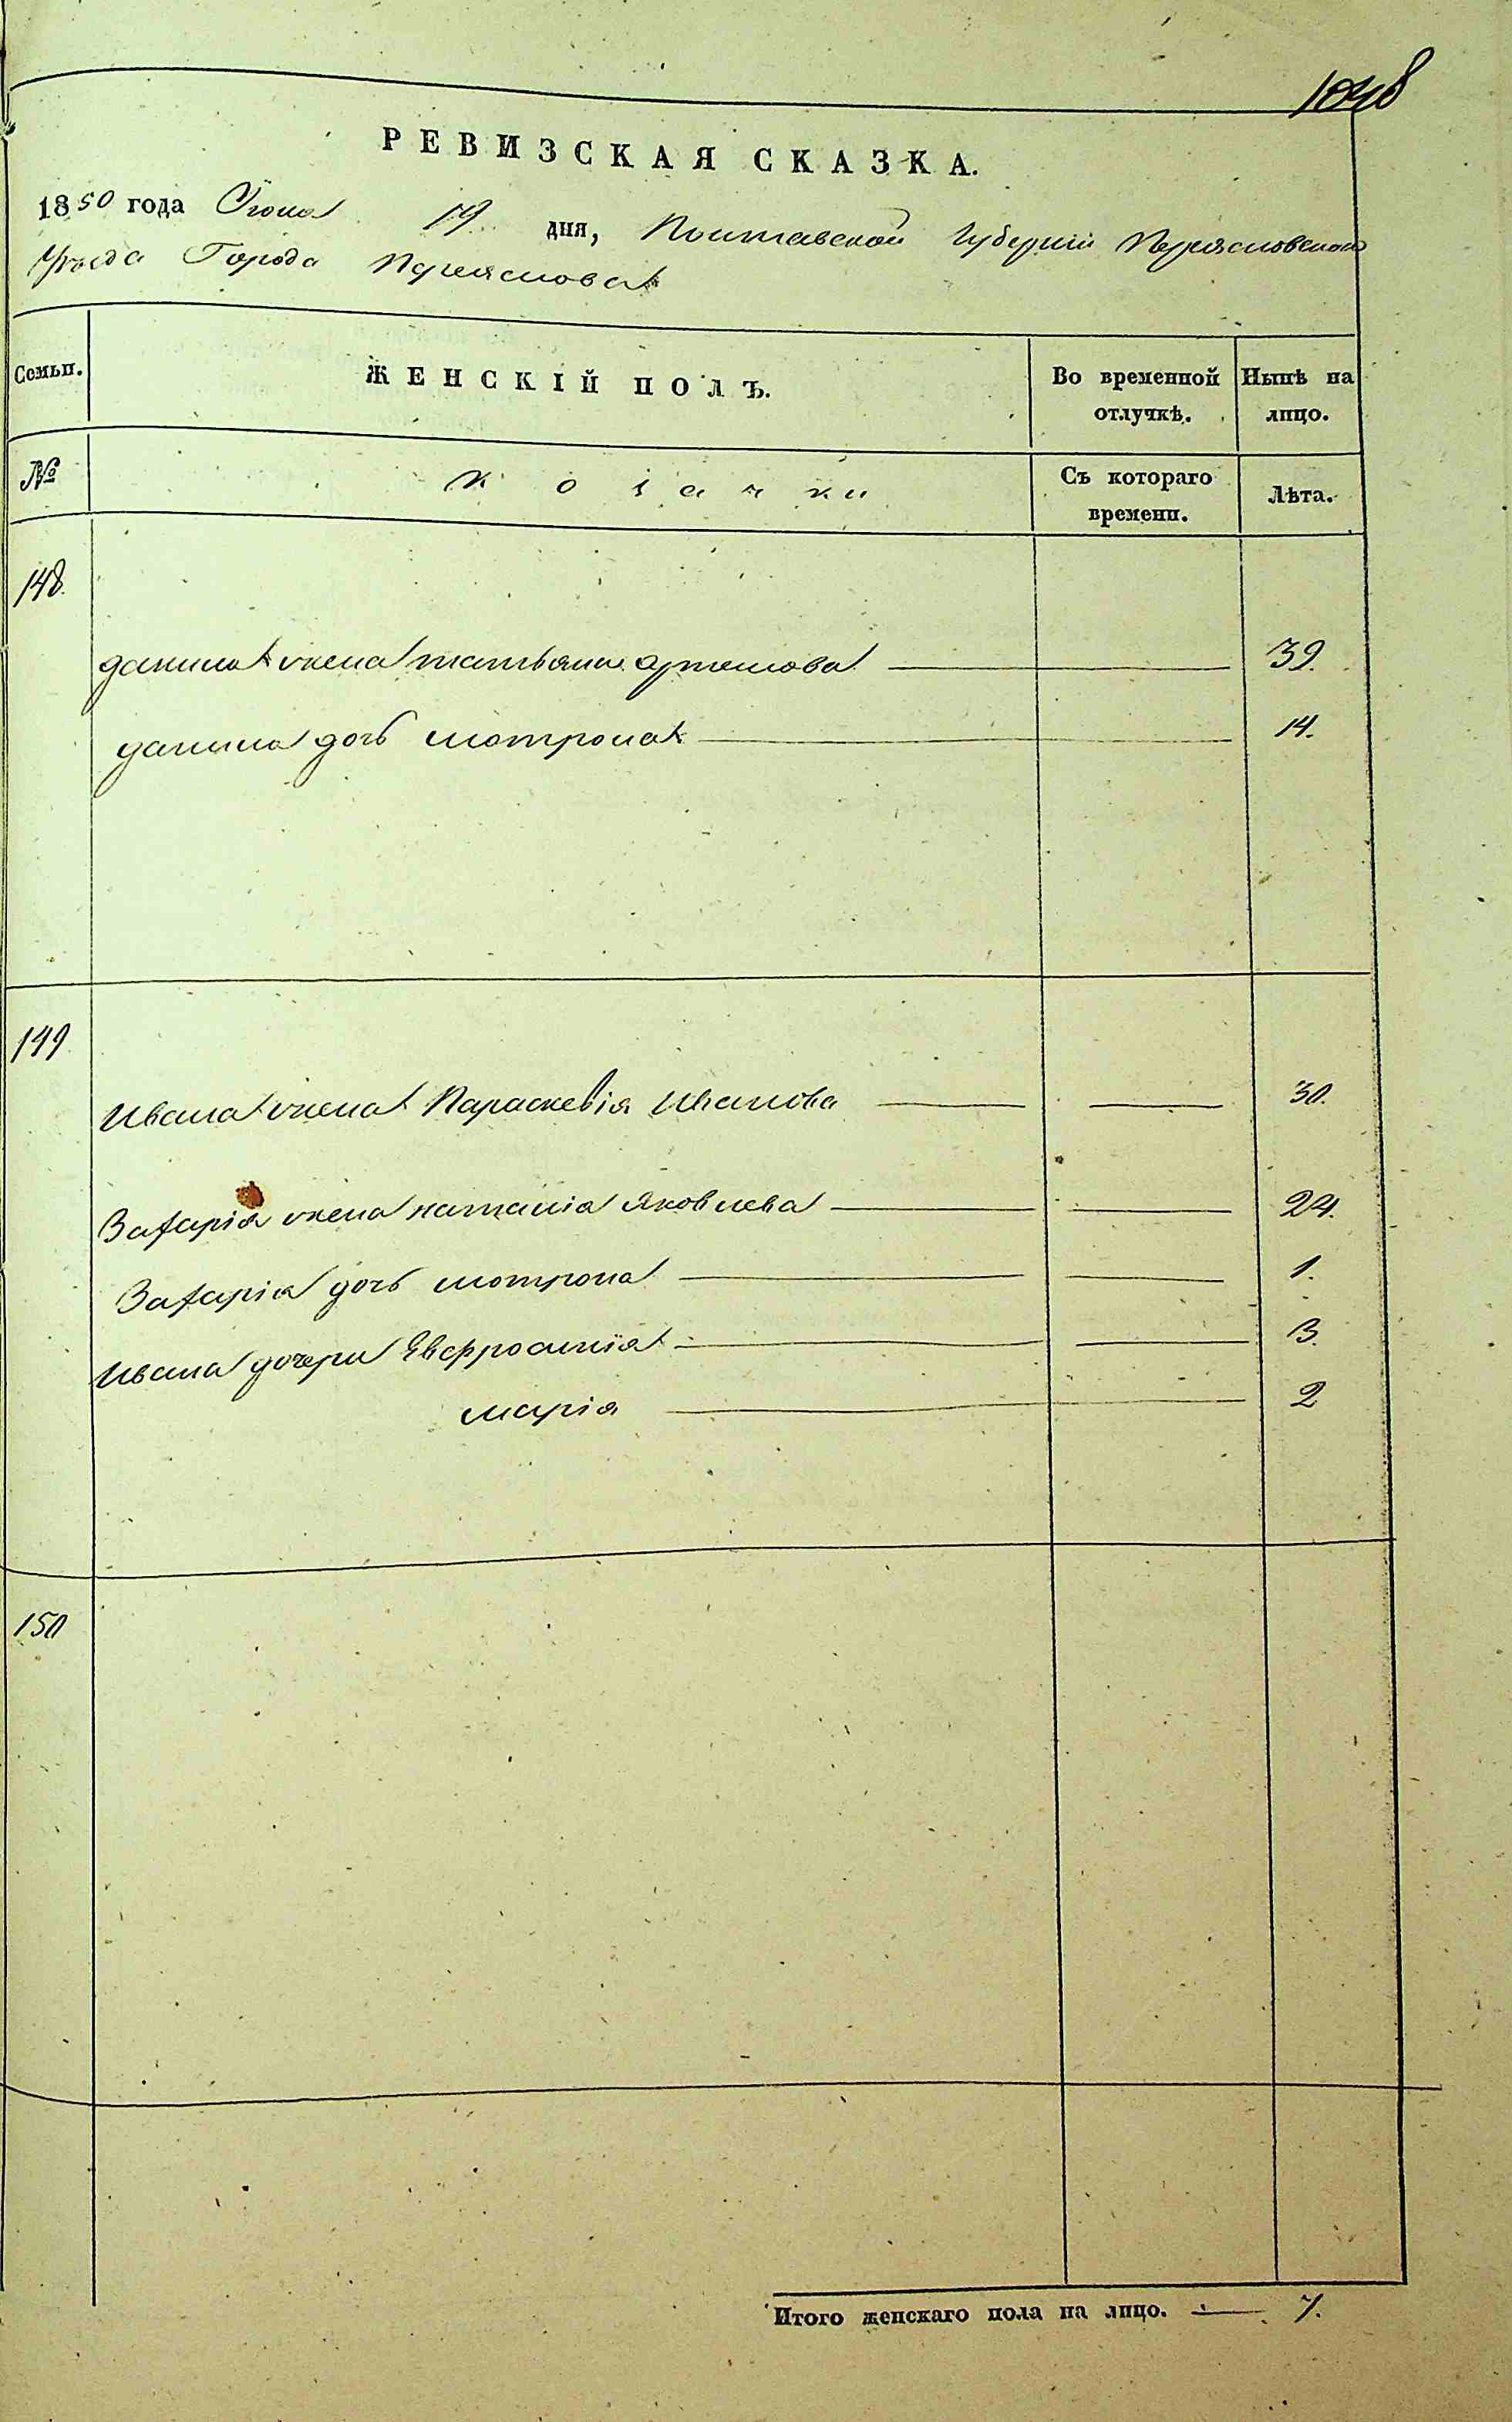 1048
РЕВИЗСКАЯ СКАЗКА.
1850 года Июня 19 дня, Полтавской Губерніи Переясловского
Уѣзда Города Переяслова
Семьи. ЖЕНСКІЙ ПОЛЪ. Во временной отлучкѣ. Нынѣ на лицо.
№ Козачки Съ котораго времени. Лѣта.
148.
Данила жена Татьяна Артемова 39.
Данила дочь Мотрона 14.
149
Ивана жена Параскевія Иванова 30.
Захарія жена Наталія Яковлева 24.
Захарія дочь Мотрона 1.
Ивана дочери Евфросинія 3.
Марія 2
150
Итого женскаго пола на лицо. 7.